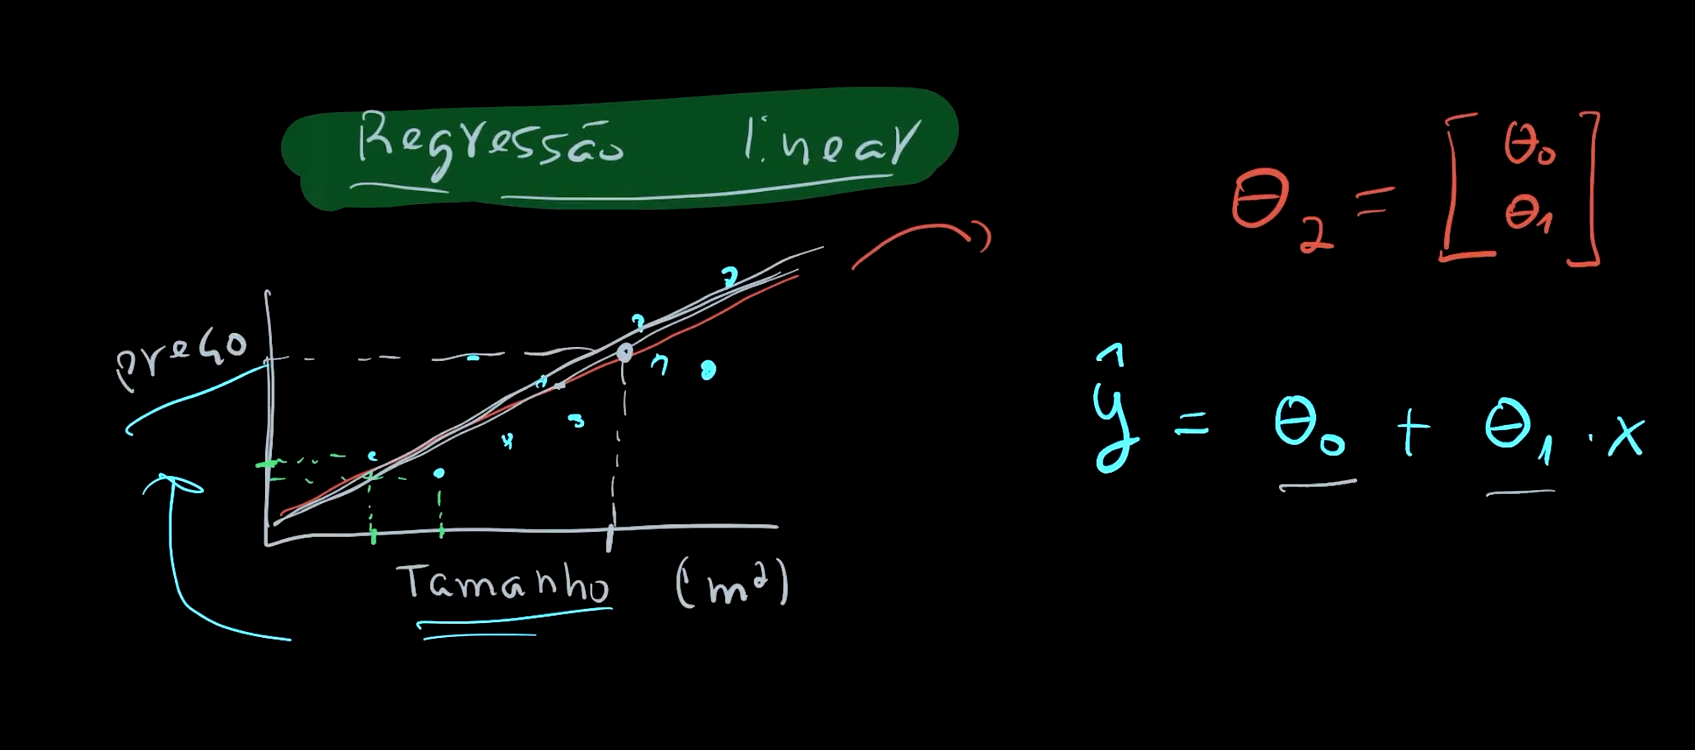 Regressão linear
preço
Tamanho (m²)
θ₂ = [θ₀
θ₁]
ŷ = θ₀ + θ₁ · x